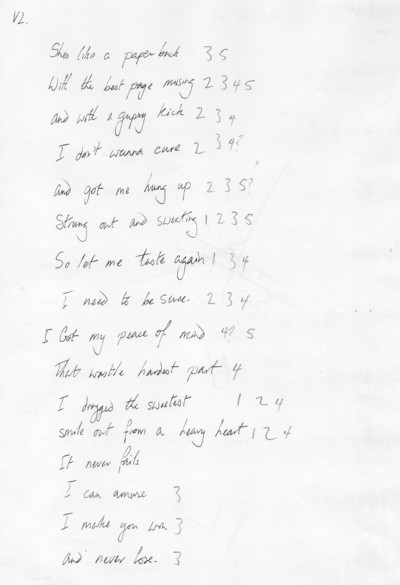 V2.
Shes like a paperback 3 5
With the best page missing 2 3 4 5
and with a gypsy kick 2 3 4
I don't wanna cure 2 3 4?
and got me hung up 2 3 5?
Strung out and sweating 1 2 3 5
So let me taste again 1 3 4
I need to be sure. 2 3 4
I Got my peace of mind 4? 5
That was the hardest part 4
I dragged the sweetest 1 2 4
smile out from a heavy heart 1 2 4
It never fails
I can amuse 3
I make you win 3
and never lose. 3